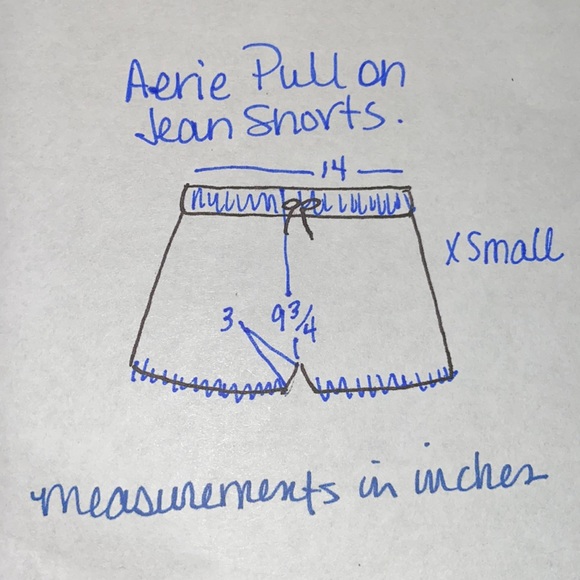 Aerie Pull on
Jean Shorts.
14
x Small
3
9 3/4
measurements in inches